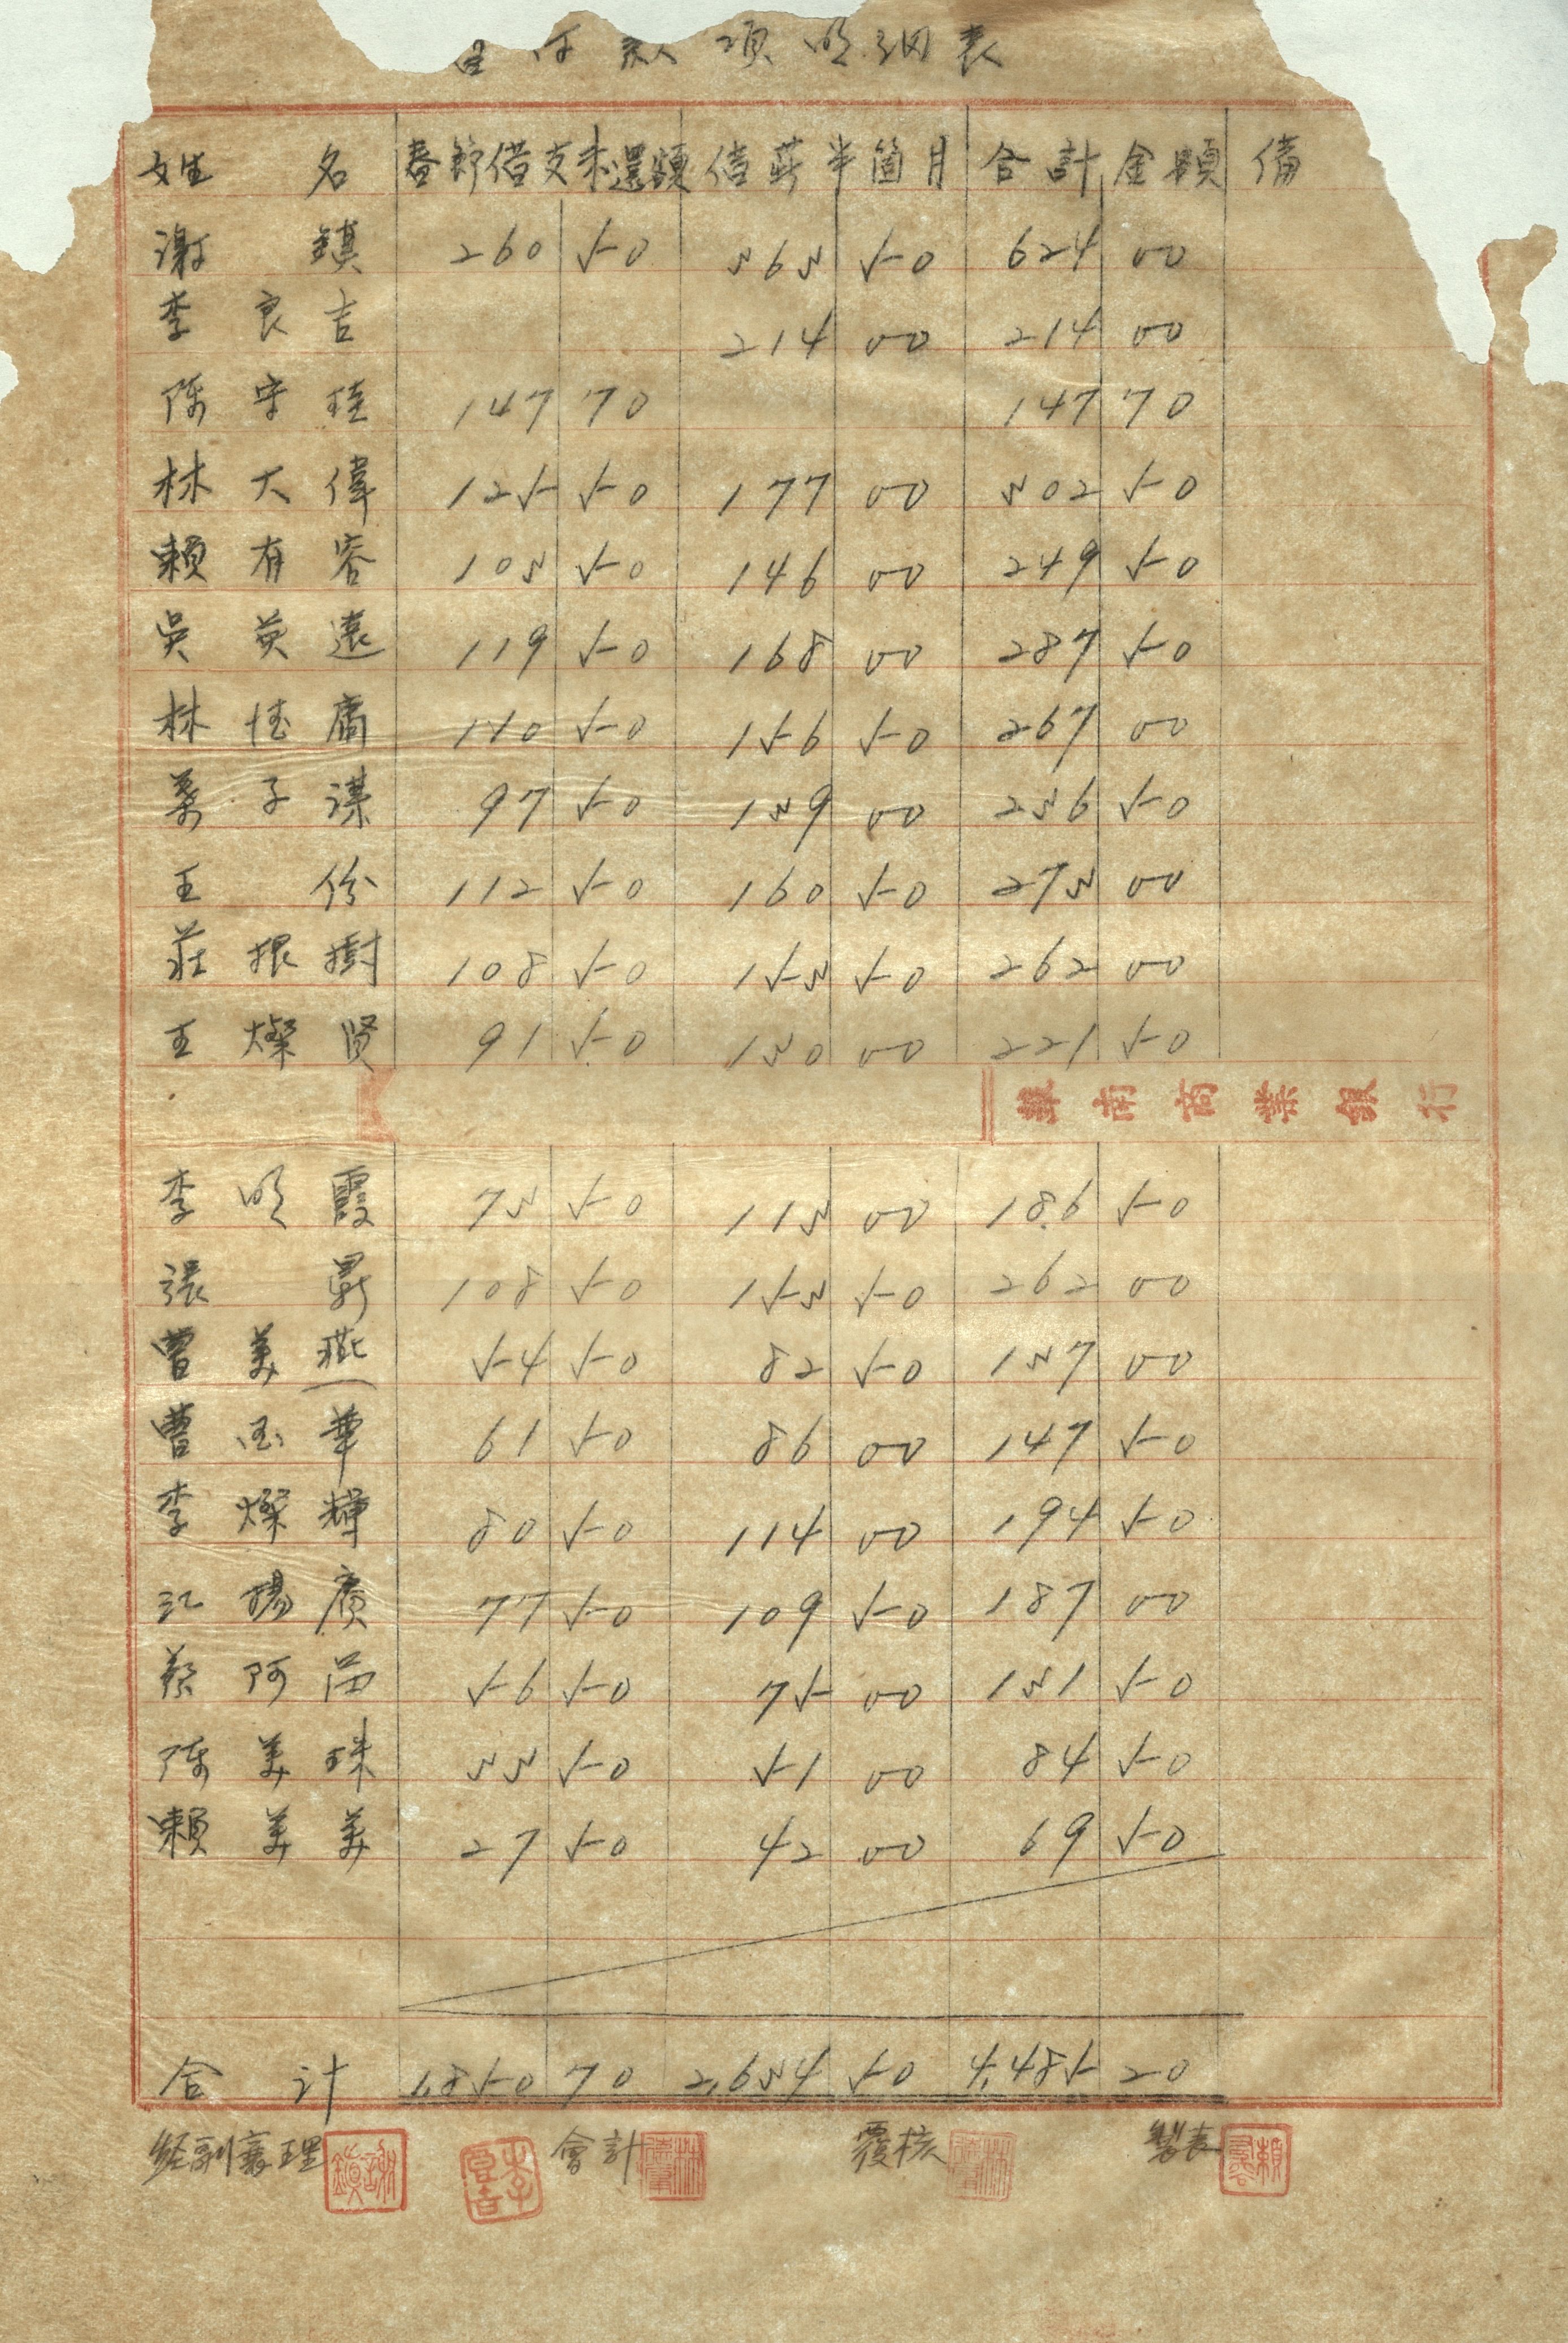 付款項明細表
姓名 春節借支未還額 借薪半箇月 合計金額 備
謝鎮 260 50 363 50 624 00
李良吉 214 00 214 00
陳守珪 147 70 147 70
林大偉 125 50 177 00 302 50
賴有容 103 50 146 00 249 50
吳英遠 119 50 168 00 287 50
林 110 50 156 50 267 00
葉子謀 97 50 139 00 236 50
王份 112 50 160 50 273 00
莊根樹 108 50 153 50 262 00
王燦賢 91 50 130 00 221 50
華南商業銀行
李明霞 73 50 113 00 186 50
張 108 50 153 50 262 00
曹美燕 54 50 82 50 137 00
曹国華 61 50 86 00 147 50
李燦輝 80 50 114 00 194 50
江楊廣 77 50 109 50 187 00
蔡阿 56 50 75 00 131 50
陳美珠 33 50 51 00 84 50
賴美美 27 50 42 00 69 50
合計 1,850 70 2,634 50 4,485 20
経副襄理 謝鎮 李良吉 會計 林 覆核 林 製表 賴